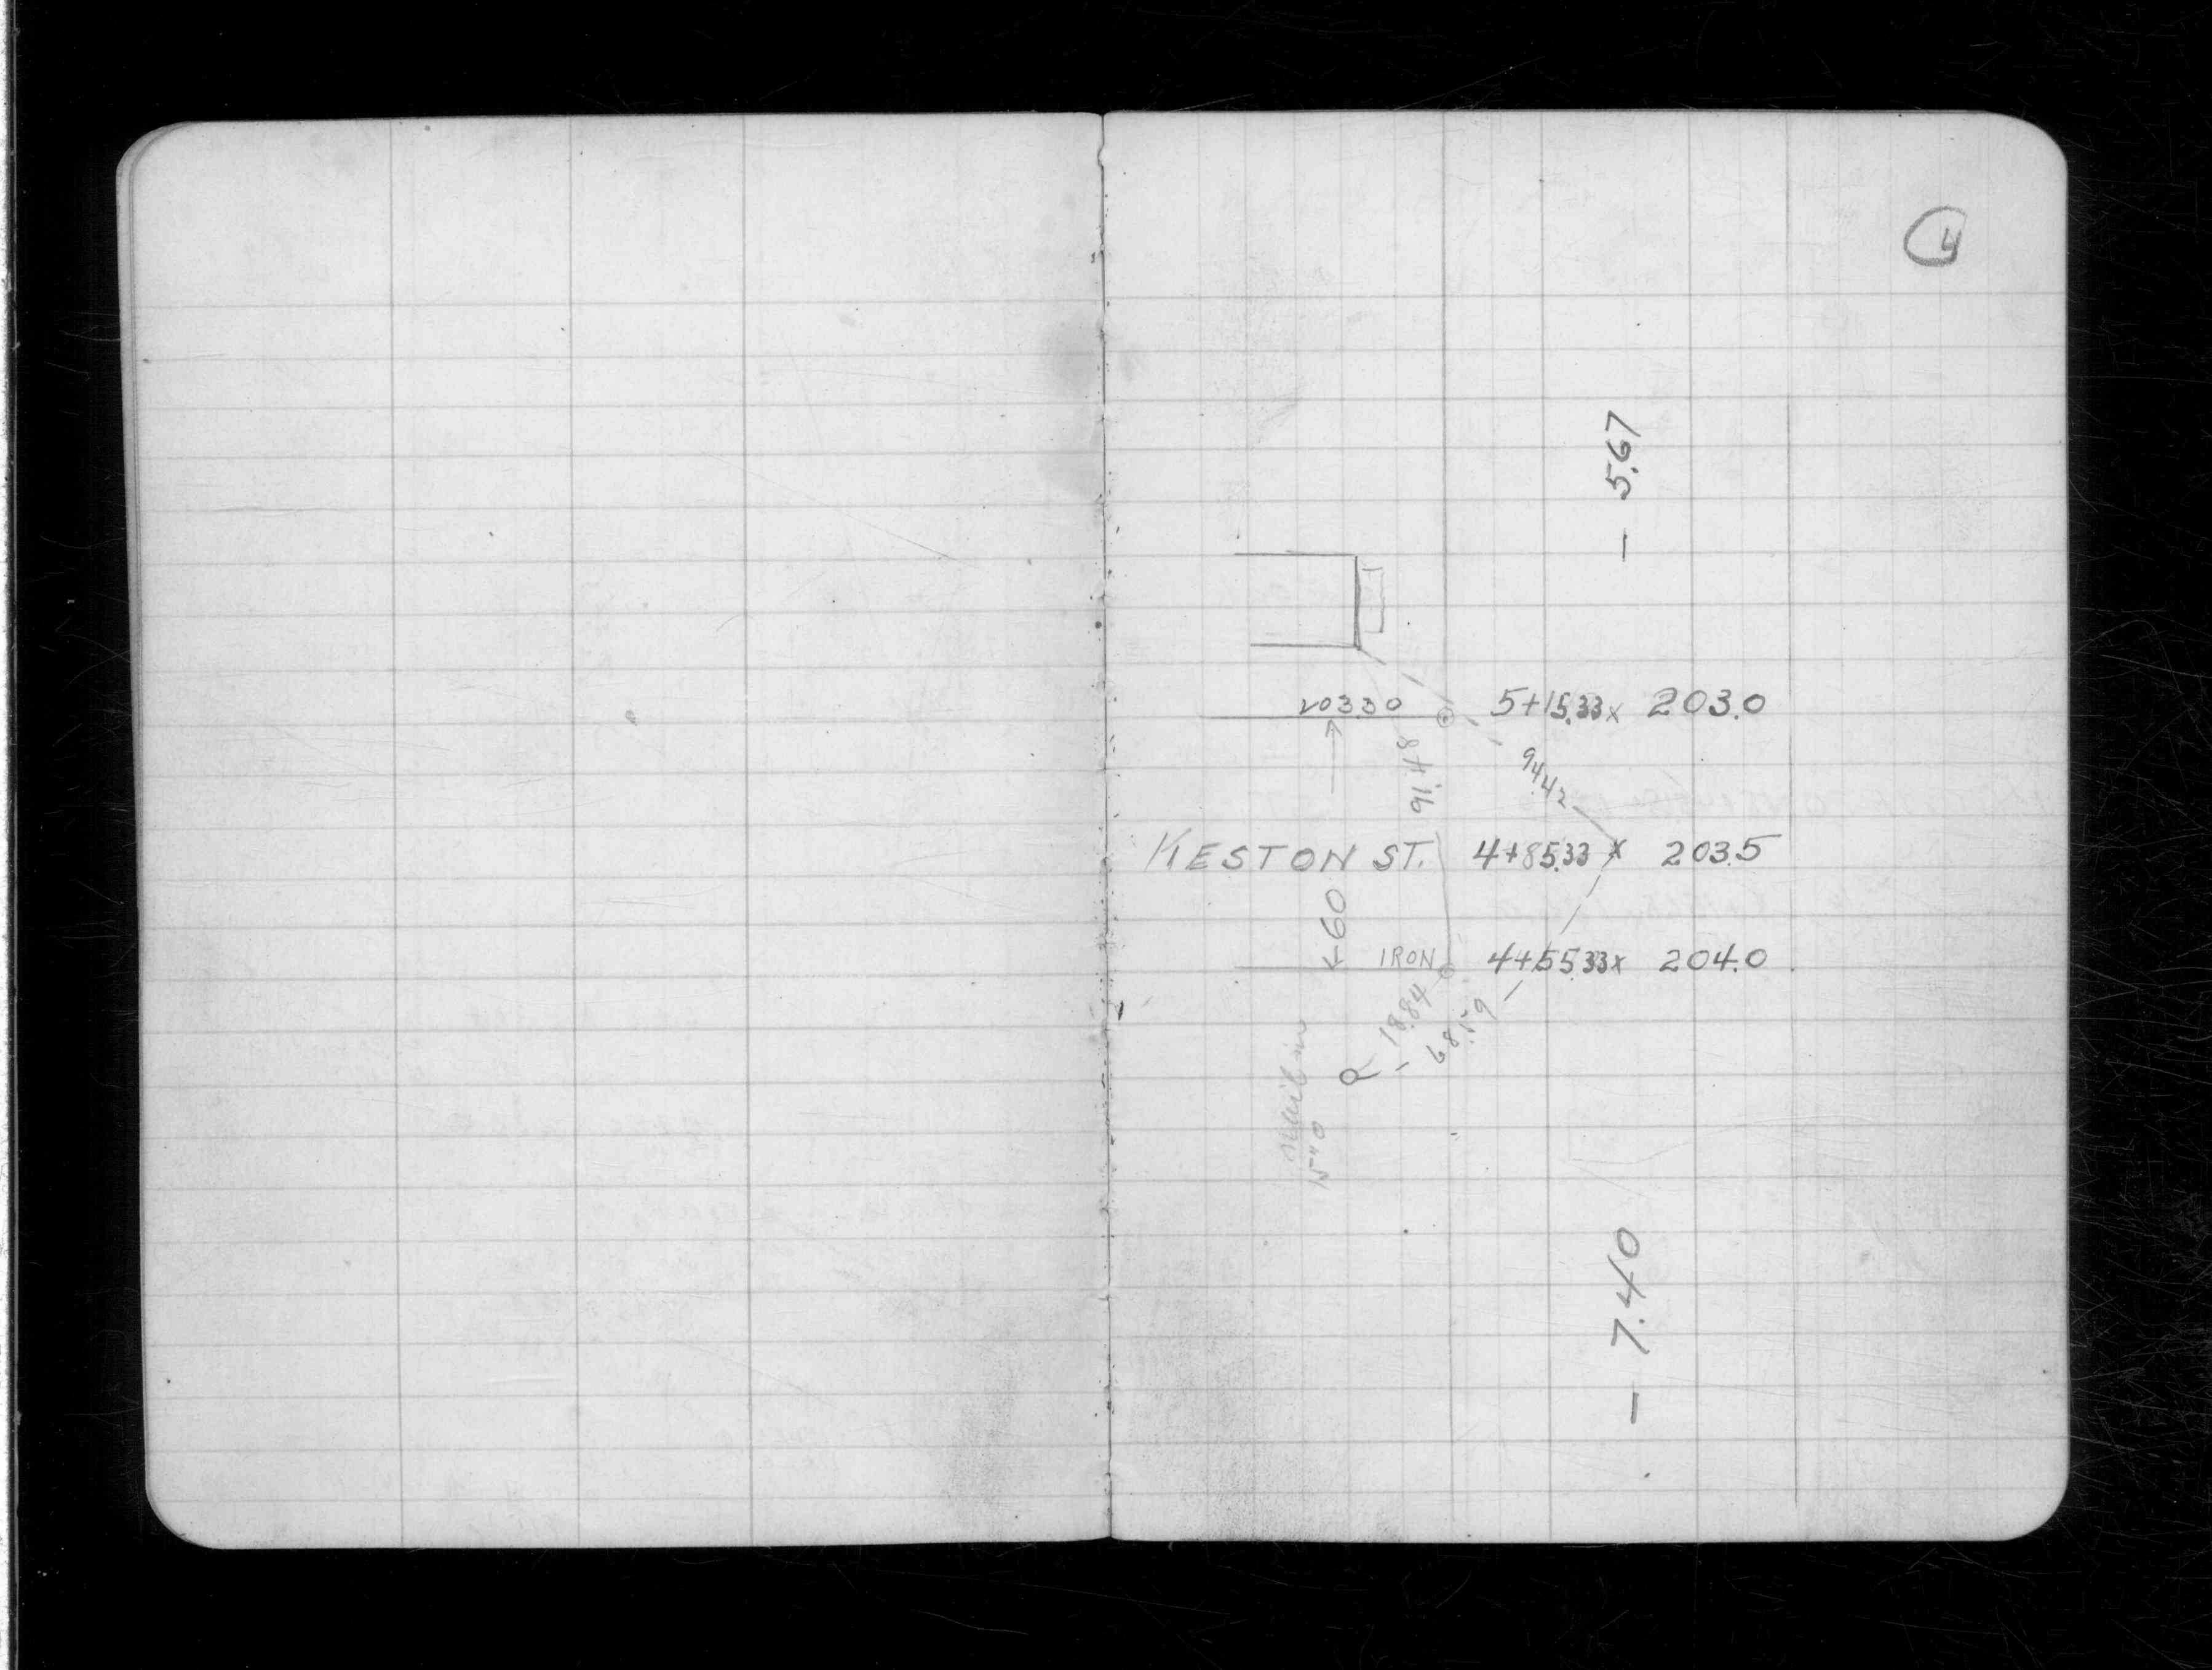 4
- 5.67
203.30 5+15.33 x 203.0
91.48
94.42
KESTON ST. 4+85.33 x 203.5
60
IRON 4+55.33 x 204.0
18.84
68.59
- 7.40